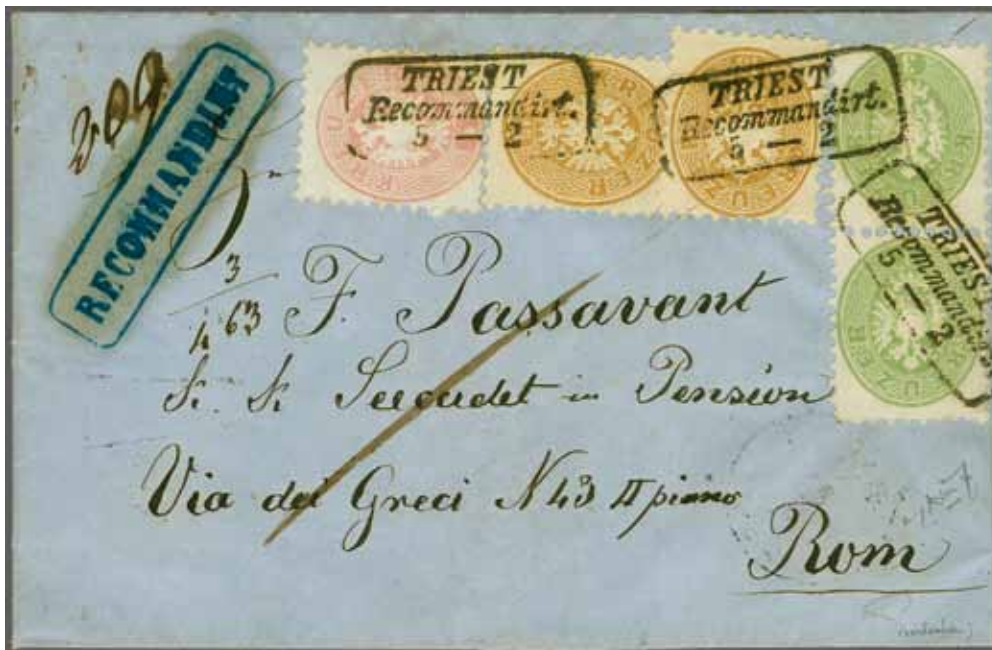 209
RECOMMANDIRT
TRIEST
Recommandirt.
5 — 2
TRIEST
Recommandirt.
5 — 2
TRIEST
Recommandirt.
5 — 2
3
63
F. Passavant
k. k. Seecadet in Pension
Via dei Greci N 43 II piano
Rom